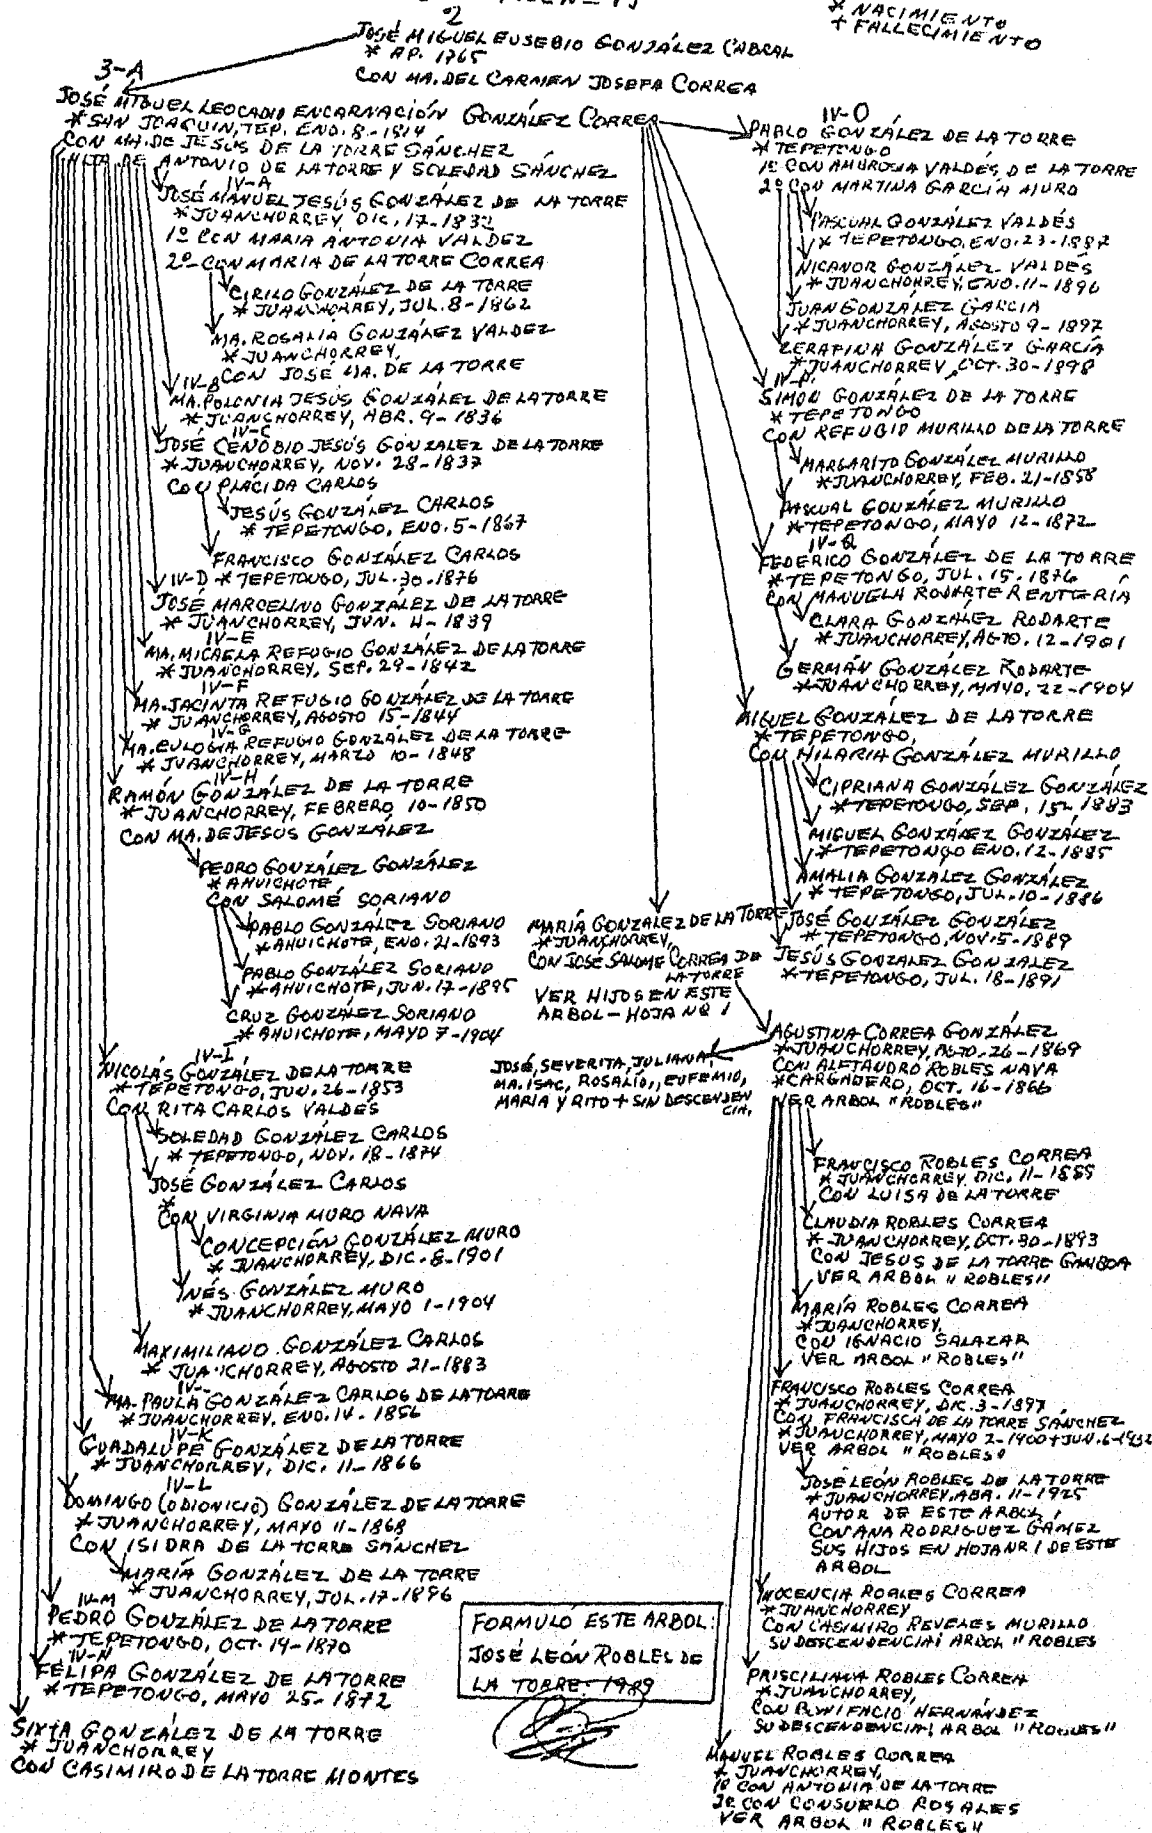 2
* NACIMIENTO
+ FALLECIMIENTO
JOSÉ MIGUEL EUSEBIO GONZÁLEZ CABRAL
* AP. 1765
CON MA. DEL CARMEN JOSEFA CORREA
3-A
JOSÉ MIGUEL LEOCADIO ENCARNACIÓN GONZÁLEZ CORREA
* SAN JOAQUIN, TEP. ENO. 8-1814
CON MA. DE JESÚS DE LA TORRE SÁNCHEZ
HIJA DE ANTONIO DE LA TORRE Y SOLEDAD SÁNCHEZ
IV-A
JOSÉ MANUEL JESÚS GONZÁLEZ DE LA TORRE
* JUANCHORREY, DIC. 17-1832
1º CON MARIA ANTONIA VALDEZ
2º CON MARIA DE LA TORRE CORREA
CIRILO GONZÁLEZ DE LA TORRE
* JUANCHORREY, JUL. 8-1862
MA. ROSALÍA GONZÁLEZ VALDEZ
* JUANCHORREY,
CON JOSÉ MA. DE LA TORRE
IV-B
MA. POLONIA JESÚS GONZÁLEZ DE LA TORRE
* JUANCHORREY, ABR. 9-1836
IV-C
JOSÉ CENOBIO JESÚS GONZALEZ DE LA TORRE
* JUANCHORREY, NOV. 28-1837
CON PLÁCIDA CARLOS
JESÚS GONZÁLEZ CARLOS
* TEPETONGO, ENO. 5-1867
FRANCISCO GONZÁLEZ CARLOS
* TEPETONGO, JUL. 30-1876
IV-D
JOSÉ MARCELINO GONZÁLEZ DE LA TORRE
* JUANCHORREY, JUN. 4-1839
IV-E
MA. MICAELA REFUGIO GONZÁLEZ DE LA TORRE
* JUANCHORREY, SEP. 29-1842
IV-F
MA. JACINTA REFUGIO GONZÁLEZ DE LA TORRE
* JUANCHORREY, AGOSTO 15-1844
IV-G
MA. EULOGIA REFUGIO GONZALEZ DE LA TORRE
* JUANCHORREY, MARZO 10-1848
IV-H
RAMÓN GONZÁLEZ DE LA TORRE
* JUANCHORREY, FEBRERO 10-1850
CON MA. DE JESUS GONZÁLEZ
PEDRO GONZÁLEZ GONZÁLEZ
* AHUICHOTE
CON SALOMÉ SORIANO
PABLO GONZÁLEZ SORIANO
* AHUICHOTE, ENO. 21-1893
PABLO GONZÁLEZ SORIANO
* AHUICHOTE, JUN. 17-1895
CRUZ GONZÁLEZ SORIANO
* AHUICHOTE, MAYO 7-1904
IV-I
NICOLÁS GONZÁLEZ DE LA TORRE
* TEPETONGO, JUN. 26-1853
CON RITA CARLOS VALDÉS
SOLEDAD GONZÁLEZ CARLOS
* TEPETONGO, NOV. 18-1874
JOSÉ GONZÁLEZ CARLOS
*
CON VIRGINIA MURO NAVA
CONCEPCIÓN GONZÁLEZ MURO
* JUANCHORREY, DIC. 8-1901
INÉS GONZÁLEZ MURO
* JUANCHORREY, MAYO 1-1904
MAXIMILIANO GONZÁLEZ CARLOS
* JUANCHORREY, AGOSTO 21-1883
IV-
MA. PAULA GONZÁLEZ CARLOS DE LA TORRE
* JUANCHORREY, ENO. 14-1856
IV-K
GUADALUPE GONZÁLEZ DE LA TORRE
* JUANCHORREY, DIC. 11-1866
IV-L
DOMINGO (O DIONICIO) GONZÁLEZ DE LA TORRE
* JUANCHORREY, MAYO 11-1868
CON ISIDRA DE LA TORRE SÁNCHEZ
MARÍA GONZÁLEZ DE LA TORRE
* JUANCHORREY, JUL. 17-1896
IV-M
PEDRO GONZÁLEZ DE LA TORRE
* TEPETONGO, OCT. 19-1870
IV-N
FELIPA GONZÁLEZ DE LA TORRE
* TEPETONGO, MAYO 25-1872
SIXTA GONZÁLEZ DE LA TORRE
* JUANCHORREY
CON CASIMIRO DE LA TORRE MONTES
IV-O
PABLO GONZÁLEZ DE LA TORRE
* TEPETONGO
1º CON AMBROSIA VALDÉS DE LA TORRE
2º CON MARTINA GARCÍA MURO
PASCUAL GONZÁLEZ VALDÉS
* TEPETONGO, ENO. 23-1887
NICANOR GONZÁLEZ VALDÉS
* JUANCHORREY, ENO. 11-1890
JUAN GONZÁLEZ GARCIA
* JUANCHORREY, AGOSTO 9-1897
ZERAFINA GONZÁLEZ GARCÍA
* JUANCHORREY, OCT. 30-1898
IV-P
SIMÓN GONZÁLEZ DE LA TORRE
* TEPETONGO
CON REFUGIO MURILLO DE LA TORRE
MARGARITO GONZÁLEZ MURILLO
* JUANCHORREY, FEB. 21-1858
PASCUAL GONZÁLEZ MURILLO
* TEPETONGO, MAYO 12-1872
IV-Q
FEDERICO GONZÁLEZ DE LA TORRE
* TEPETONGO, JUL. 15-1876
CON MANUELA RODARTE RENTERÍA
CLARA GONZÁLEZ RODARTE
* JUANCHORREY, AGTO. 12-1901
GERMÁN GONZÁLEZ RODARTE
* JUANCHORREY, MAYO, 22-1904
MIGUEL GONZÁLEZ DE LA TORRE
* TEPETONGO,
CON HILARIA GONZÁLEZ MURILLO
CIPRIANA GONZÁLEZ GONZÁLEZ
* TEPETONGO, SEP. 15-1883
MIGUEL GONZÁLEZ GONZÁLEZ
* TEPETONGO ENO. 12-1885
AMALIA GONZÁLEZ GONZÁLEZ
* TEPETONGO, JUL. 10-1886
JOSÉ GONZÁLEZ GONZÁLEZ
* TEPETONGO, NOV. 5-1889
JESÚS GONZÁLEZ GONZÁLEZ
* TEPETONGO, JUL. 18-1891
MARÍA GONZÁLEZ DE LA TORRE
* JUANCHORREY,
CON JOSÉ SALOME CORREA DE
LA TORRE
VER HIJOS EN ESTE
ARBOL - HOJA Nº 1
AGUSTINA CORREA GONZÁLEZ
* JUANCHORREY, AGTO. 26-1869
CON ALEJANDRO ROBLES NAVA
* CARGADERO, OCT. 16-1866
VER ARBOL "ROBLES"
JOSÉ, SEVERITA, JULIANA,
MA. ISAC, ROSALÍO, EUFEMIO,
MARIA Y RITO + SIN DESCENDEN
CIA.
FRANCISCO ROBLES CORREA
* JUANCHORREY, DIC. 11-1885
CON LUISA DE LA TORRE
CLAUDIA ROBLES CORREA
* JUANCHORREY, OCT. 30-1893
CON JESUS DE LA TORRE GAMBOA
VER ARBOL "ROBLES"
MARÍA ROBLES CORREA
* JUANCHORREY,
CON IGNACIO SALAZAR
VER ARBOL "ROBLES"
FRANCISCO ROBLES CORREA
* JUANCHORREY, DIC. 3-1897
CON FRANCISCA DE LA TORRE SÁNCHEZ
* JUANCHORREY, MAYO 2-1900 + JUN. 6-1932
VER ARBOL "ROBLES"
JOSÉ LEÓN ROBLES DE LA TORRE
* JUANCHORREY, ABR. 11-1925
AUTOR DE ESTE ARBOL,
CON ANA RODRIGUEZ GÁMEZ
SUS HIJOS EN HOJA NR 1 DE ESTE
ARBOL
INOCENCIA ROBLES CORREA
* JUANCHORREY
CON CASIMIRO REVELES MURILLO
SU DESCENDENCIA: ARBOL "ROBLES
PRISCILIANA ROBLES CORREA
* JUANCHORREY,
CON BONIFACIO HERNÁNDEZ
SU DESCENDENCIA; ARBOL "ROBLES"
MANUEL ROBLES CORREA
* JUANCHORREY,
1º CON ANTONIA DE LA TORRE
2º CON CONSUELO ROSALES
VER ARBOL "ROBLES"
FORMULÓ ESTE ARBOL:
JOSÉ LEÓN ROBLES DE
LA TORRE-1989